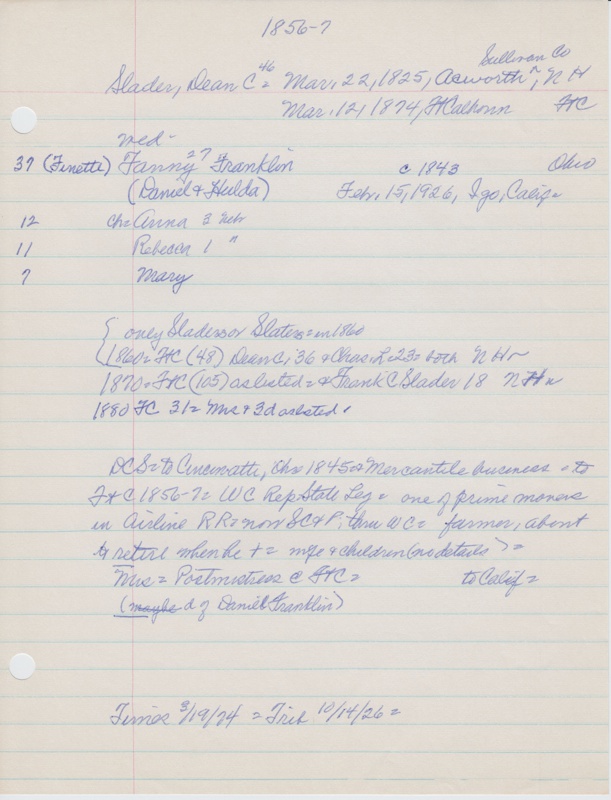 1856-7
Sullivan Co
Slader, Dean C 46 = Mar, 22, 1825, Acworth ", N H
Mar, 12, 1874, Ft Calhoun FtC
wed-
37 (Finette) "Fanny" 27 Franklin c 1843 Ohio
(Daniel & Hulda) Feb, 15, 1926, Igo, Calif =
12 ch = Anna 3 Nebr
11 Rebecca 1 "
7 Mary
{ only Sladers or Slaters = in 1860
1860 = FtC (48) Dean C, 36 & Chas. L = 23 = both N H ~
1870 = FtC (105) as listed = & Frank C Slader 18 N H
1880 FC 31 = Mrs & 3 d as listed
DCS = to Cincinatti, Ohio 1845 = Mercantile business = to
FtC 1856-7 = WC Rep State Leg = one of prime movers
in Airline RR = now SC & P, thru WC = farmer, about
to retire when he + = wife & children (no details) =
Mrs = Postmistress @ FtC = to Calif =
(maybe d of Daniel Franklin)
Times 3/19/74 = Trib 10/14/26 =